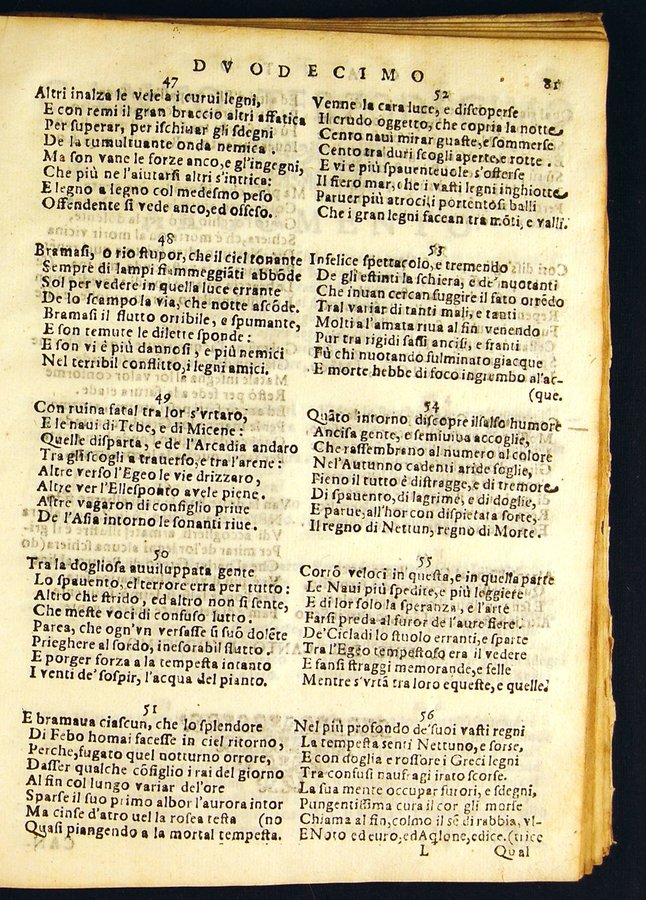 DVODECIMO
81
47
Altri inalza le vele a i curui legni,
E con remi il gran braccio altri affatica
Per superar, per ischiuar gli sdegni
De la tumultuante onda nemica.
Ma son vane le forze anco, e gl'ingegni,
Che più ne l'aiutarsi altri s'intrica:
E legno a legno col medesmo peso
Offendente si vede anco, ed offeso.
48
Bramasi, o rio stupor, che il ciel tonante
Sempre di lampi fiammeggiãti abbõde
Sol per vedere in quella luce errante
De lo scampo la via, che notte ascõde.
Bramasi il flutto orribile, e spumante,
E son temute le dilette sponde:
E son vi è più dannosi, e più nemici
Nel terribil conflitto, i legni amici.
49
Con ruina fatal tra lor s'vrtaro,
E le naui di Tebe, e di Micene:
Quelle disparta, e de l'Arcadia andaro
Tra gli scogli a trauerso, e tra l'arene:
Altre verso l'Egeo le vie drizzaro,
Altre ver l'Ellesponto a vele piene.
Altre vagaron di consiglio priue
De l'Asia intorno le sonanti riue.
50
Tra la dogliosa auuiluppata gente
Lo spauento, el terrore erra per tutto:
Altro che strido, ed altro non si sente,
Che meste voci di confuso lutto.
Parea, che ogn'vn versasse il suõ dolẽte
Prieghere al sordo, inesorabil flutto.
E porger forza a la tempesta intanto
I venti de' sospir, l'acqua del pianto.
51
E bramaua ciascun, che lo splendore
Di Febo homai facesse in ciel ritorno,
Perche, fugato quel notturno orrore,
Dasser qualche cõsiglio i rai del giorno
Al fin col lungo variar del'ore
Sparse il suo primo albor l'aurora intor
Ma cinse d'atro uel la rosea testa (no
Quasi piangendo a la mortal tempesta.
52
Venne la cara luce, e discoperse
Il crudo oggetto, che copria la notte
Cento naui mirar guaste, e sommerse
Cento tra duri scogli aperte, e rotte.
E vi e più spauenteuole s'offerse
Il fiero mar, che i vasti legni inghiotte
Paruer più atroci, i portentosi balli
Che i gran legni facean tra mõti, e valli.
53
Infelice spettacolo, e tremendo
De gli estinti la schiera, e de' nuotanti
Che inuan cercan fuggire il fato orrẽdo
Tral variar di tanti mali, e tanti
Molti a l'amata riua al fin venendo
Pur tra rigidi sassi ancisi, e franti
Fù chi nuotando fulminato giacque
E morte hebbe di foco in grembo al'ac-
(que.
54
Quãto intorno discopre il salso humore
Ancisa gente, e semiuiua accoglie,
Che rassembrano al numero al colore
Nel'Autunno cadenti aride foglie,
Pieno il tutto è di stragge, e di tremore
Di spauento, di lagrime, e di doglie,
E parue, all'hor con dispietata sorte,
Il regno di Nettun, regno di Morte.
55
Corrõ veloci in questa, e in quella parte
Le Naui più spedite, e più leggiere
E di lor solo la speranza, e l'arte
Farsi preda al furor de l'aure fiere.
De' Cicladi lo stuolo erranti, e sparte
Tra l'Egeo tempestoso era il vedere
E fansi straggi memorande, e felle
Mentre s'vrtã tra loro e queste, e quelle.
56
Nel più profondo de' suoi vasti regni
La tempesta senti Nettuno, e sorse,
E con doglia e rossore i Greci legni
Tra confusi naufragi irato scorse.
La sua mente occupar furori, e sdegni,
Pungentissima cura il cor gli morse
Chiama al fin, colmo il sẽ di rabbia, vl-
E Noto ed euro, ed Aqlone, e dice. (trice
L
Qual